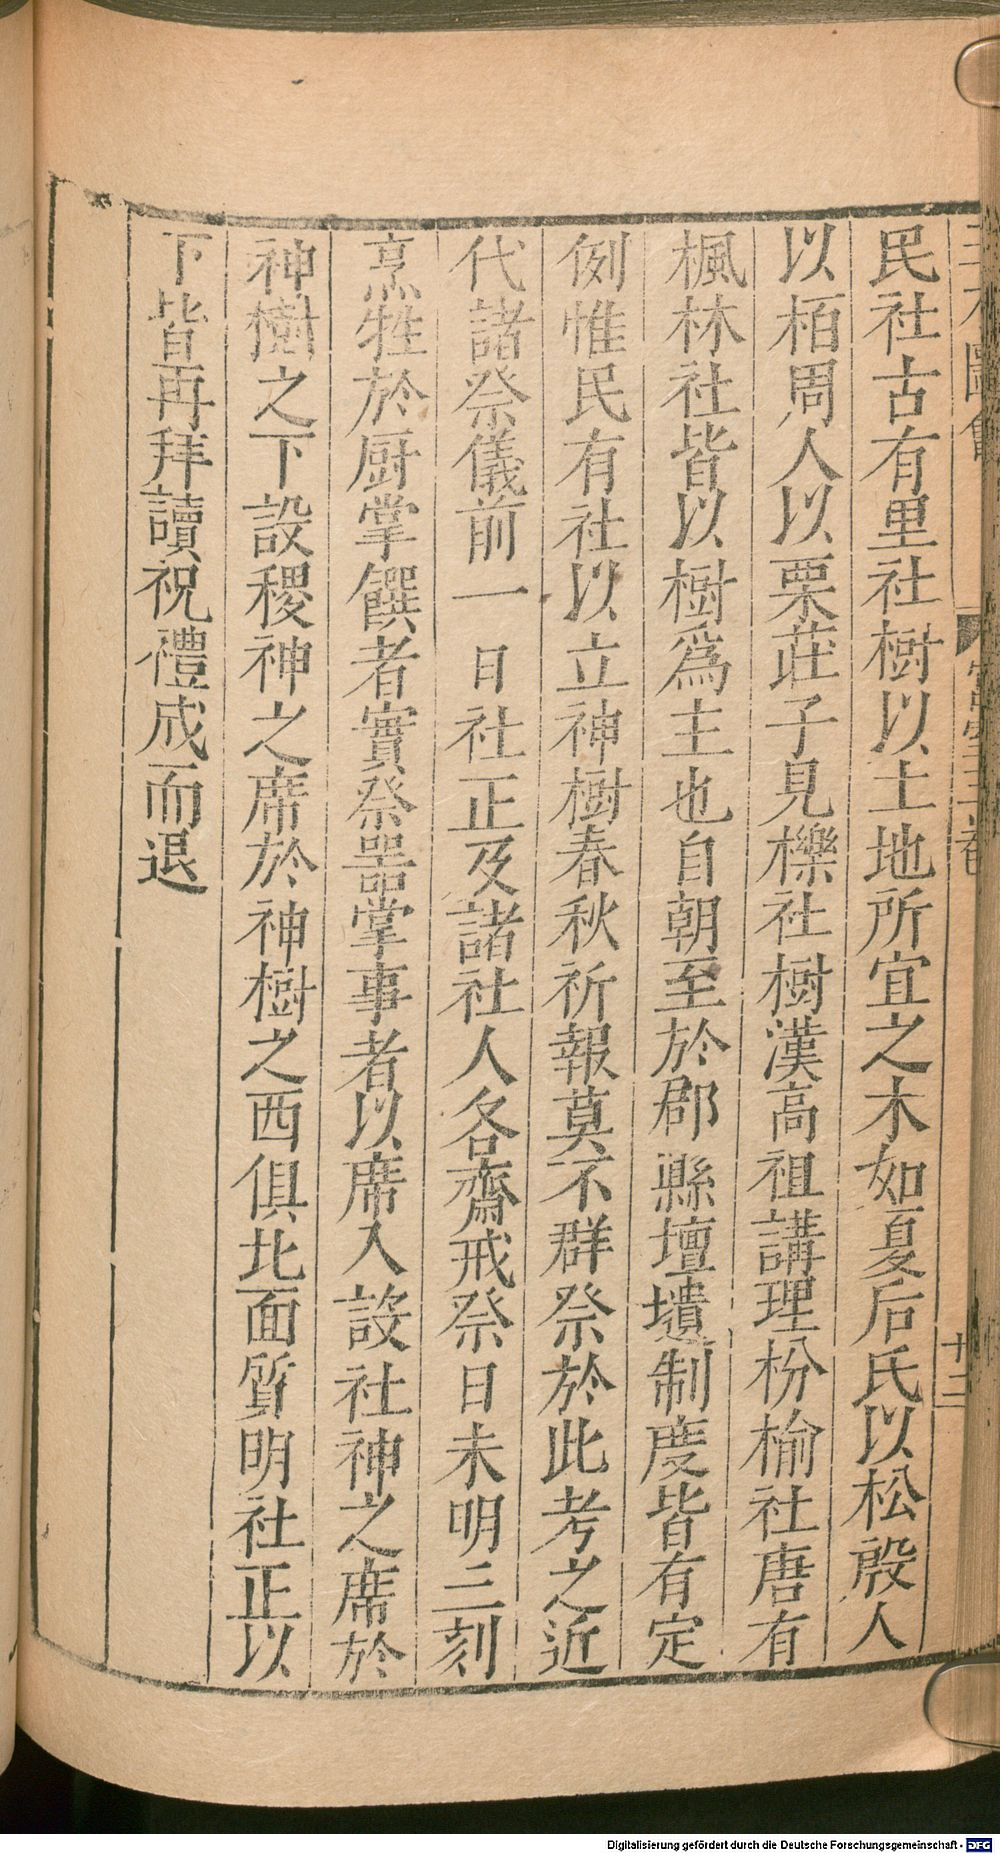 民社古有里社樹以土地所宜之木如夏后氏以松殷人
以栢周人以栗莊子見櫟社樹漢高祖講理枌榆社唐有
楓林社皆以樹爲主也自朝至於郡縣壇壝制度皆有定
例惟民有社以立神樹春秋祈報莫不群祭於此考之近
代諸祭儀前一日社正及諸社人各齋戒祭日未明三刻
烹牲於厨掌饌者實祭器掌事者以席入設社神之席於
神樹之下設稷神之席於神樹之西俱北面質明社正以
下皆再拜讀祝禮成而退
十二
Digitalisierung gefördert durch die Deutsche Forschungsgemeinschaft - DFG